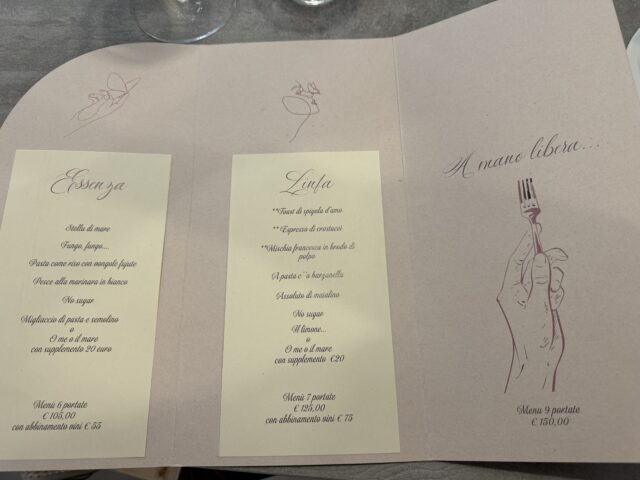 Essenza
Stella di mare
Fungo, fungo....
Pasta come riso con vongole fujute
Pesce alla marinara in bianco
No sugar
Migliaccio di pasta e semolino
o
O me o il mare
con supplemento 20 euro
Menù 6 portate
€ 105,00
con abbinamento vini € 55
Linfa
**Toast di spigola d'amo
** Espresso di crostacei
**Mischia francesca in brodo di
polpo
A pasta c''a barzanella
Assoluto di maialino
No sugar
Il limone...
o
O me o il mare
con supplemento €20
Menù 7 portate
€ 125,00
con abbinamento vini € 75
A mano libera...
Menu 9 portate
€ 150,00